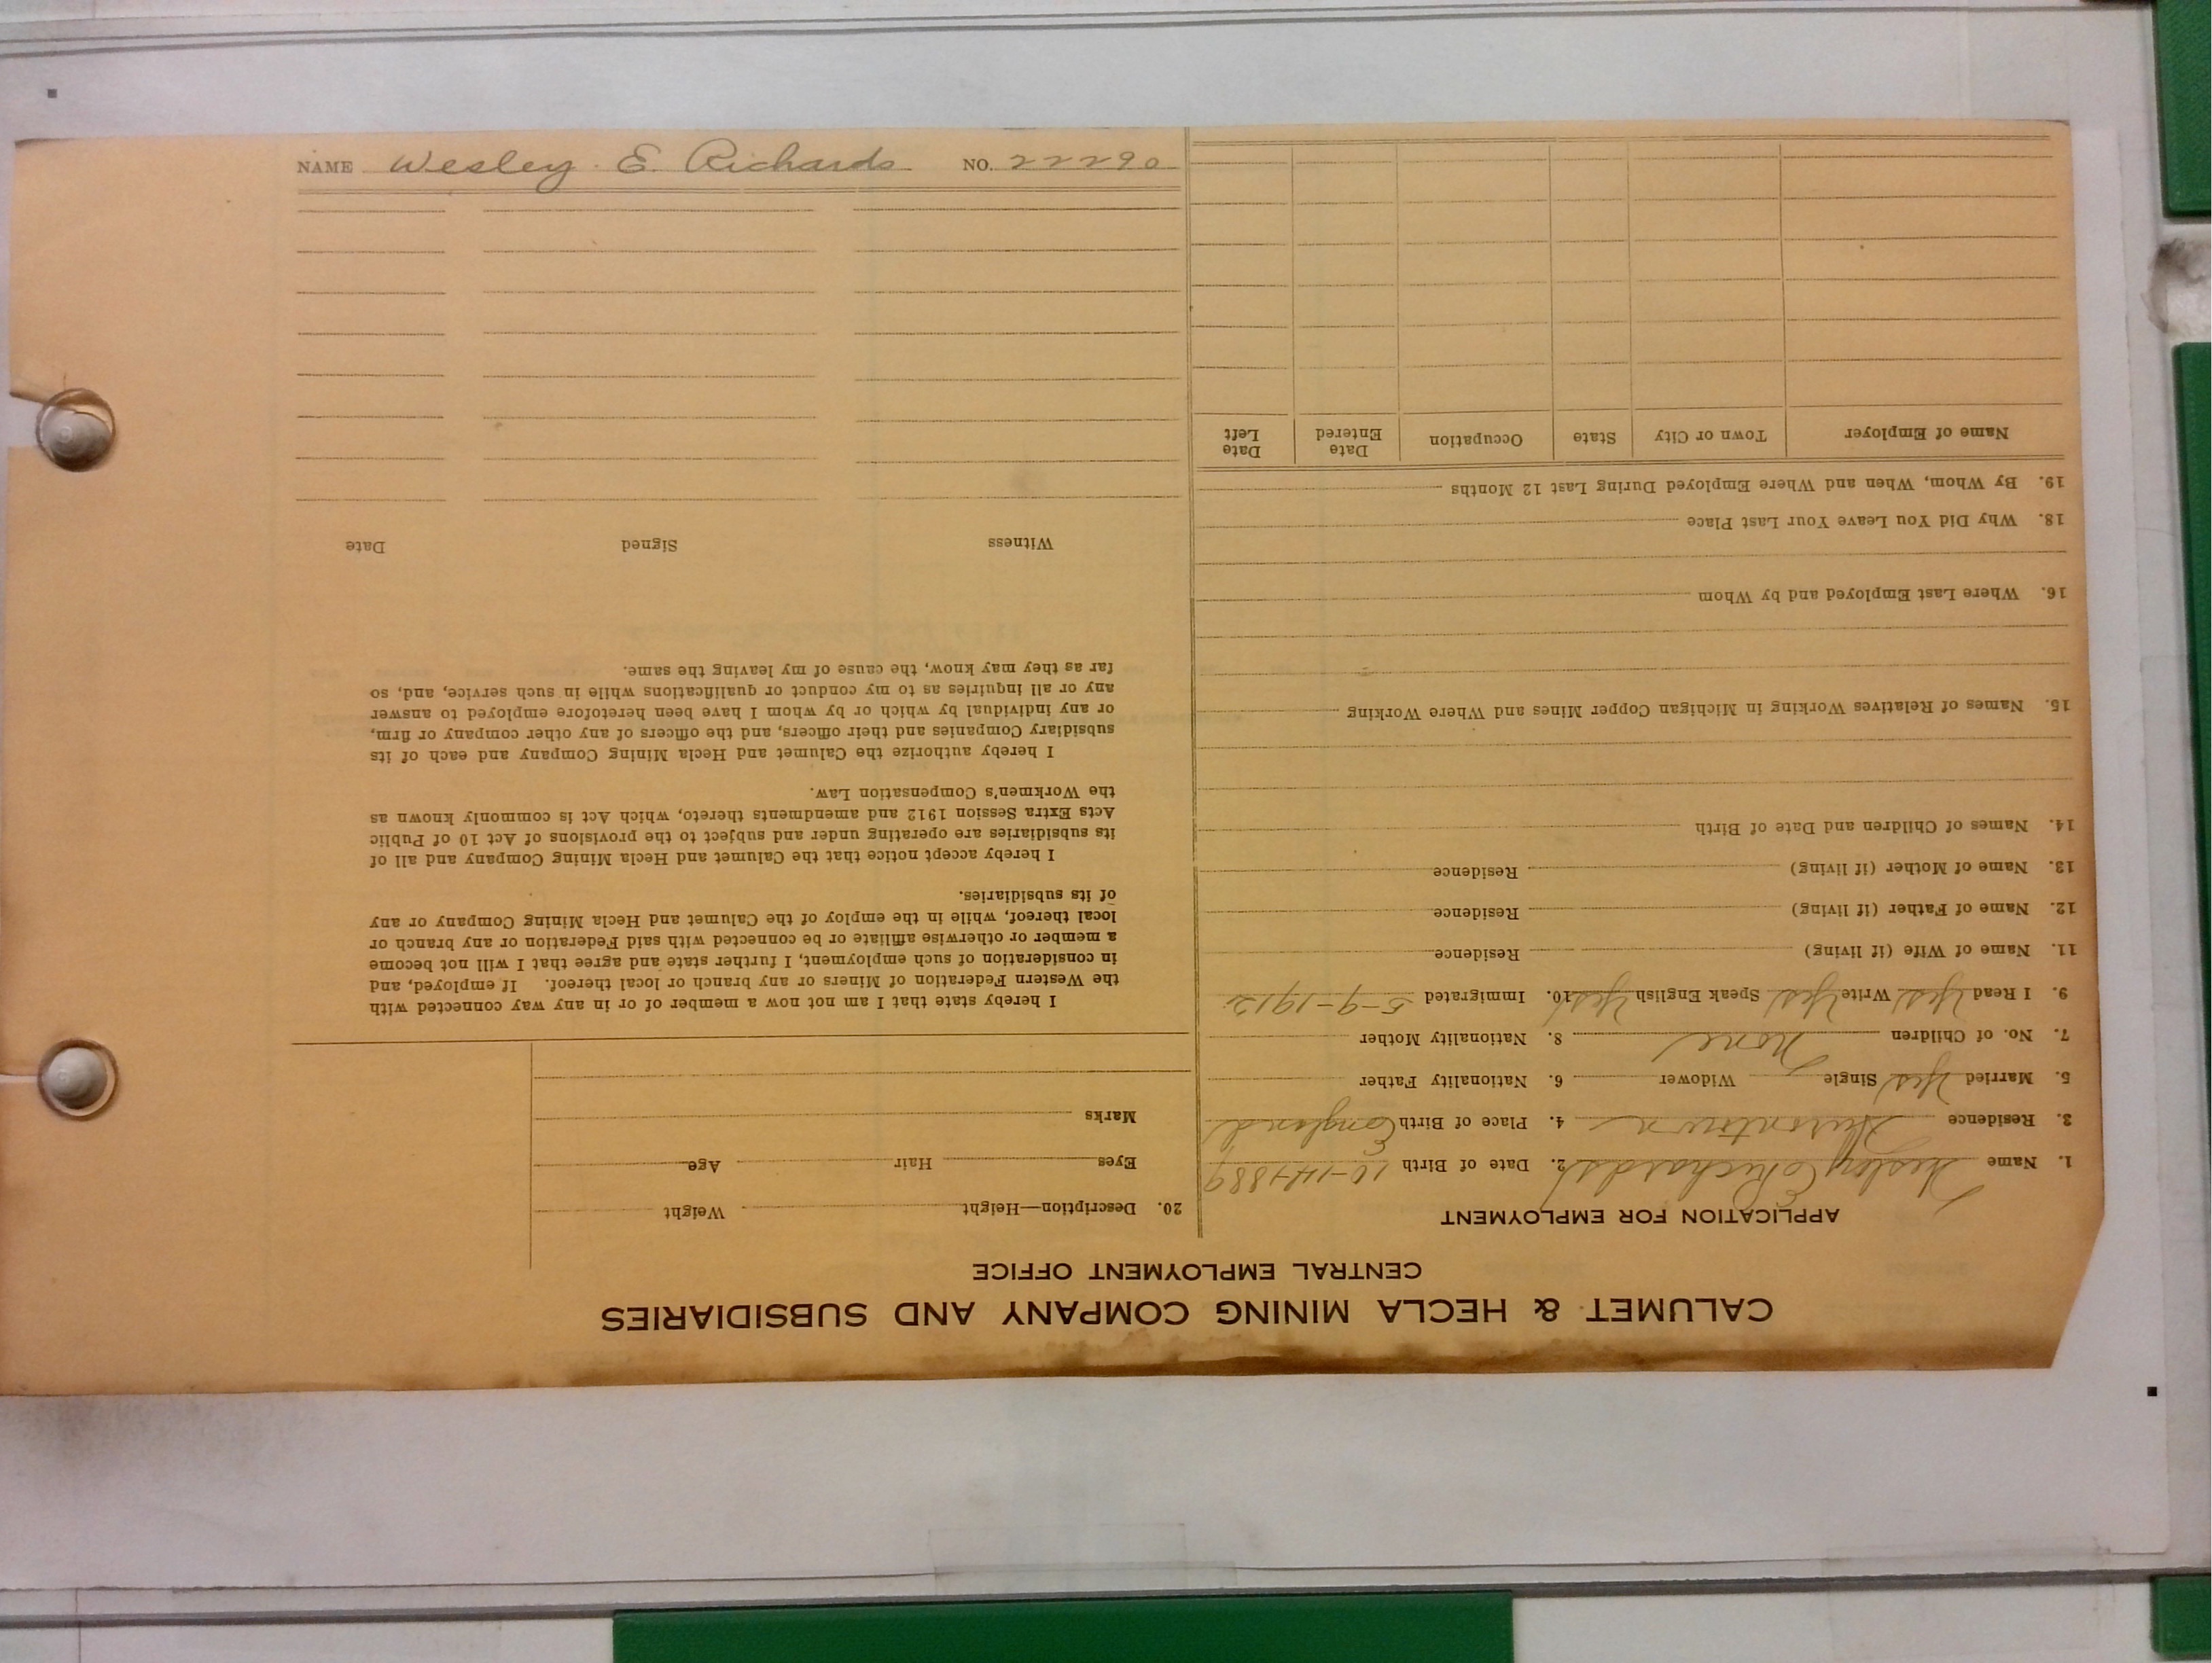 NAME Wesley E. Richards NO. 22290
CALUMET & HECLA MINING COMPANY AND SUBSIDIARIES
CENTRAL EMPLOYMENT OFFICE
APPLICATION FOR EMPLOYMENT
1. Name Wesley E Richards 2. Date of Birth 10-14-1889
3. Residence Hurontown 4. Place of Birth England
5. Married Yes Single Widower 6. Nationality Father
7. No. of Children None 8. Nationality Mother
9. I Read Yes Write Yes Speak English Yes 10. Immigrated 5-9-1912
11. Name of Wife (if living) Residence
12. Name of Father (if living) Residence
13. Name of Mother (if living) Residence
14. Names of Children and Date of Birth
15. Names of Relatives Working in Michigan Copper Mines and Where Working
16. Where Last Employed and by Whom
18. Why Did You Leave Your Last Place
19. By Whom, When and Where Employed During Last 12 Months
Name of Employer Town or City State Occupation Date Entered Date Left
20. Description—Height Weight
Eyes Hair Age
Marks
I hereby state that I am not now a member of or in any way connected with
the Western Federation of Miners or any branch or local thereof. If employed, and
in consideration of such employment, I further state and agree that I will not become
a member or otherwise affiliate or be connected with said Federation or any branch or
local thereof, while in the employ of the Calumet and Hecla Mining Company or any
of its subsidiaries.
I hereby accept notice that the Calumet and Hecla Mining Company and all of
its subsidiaries are operating under and subject to the provisions of Act 10 of Public
Acts Extra Session 1912 and amendments thereto, which Act is commonly known as
the Workmen's Compensation Law.
I hereby authorize the Calumet and Hecla Mining Company and each of its
subsidiary Companies and their officers, and the officers of any other company or firm,
or any individual by which or by whom I have been heretofore employed to answer
any or all inquiries as to my conduct or qualifications while in such service, and, so
far as they may know, the cause of my leaving the same.
Witness Signed Date